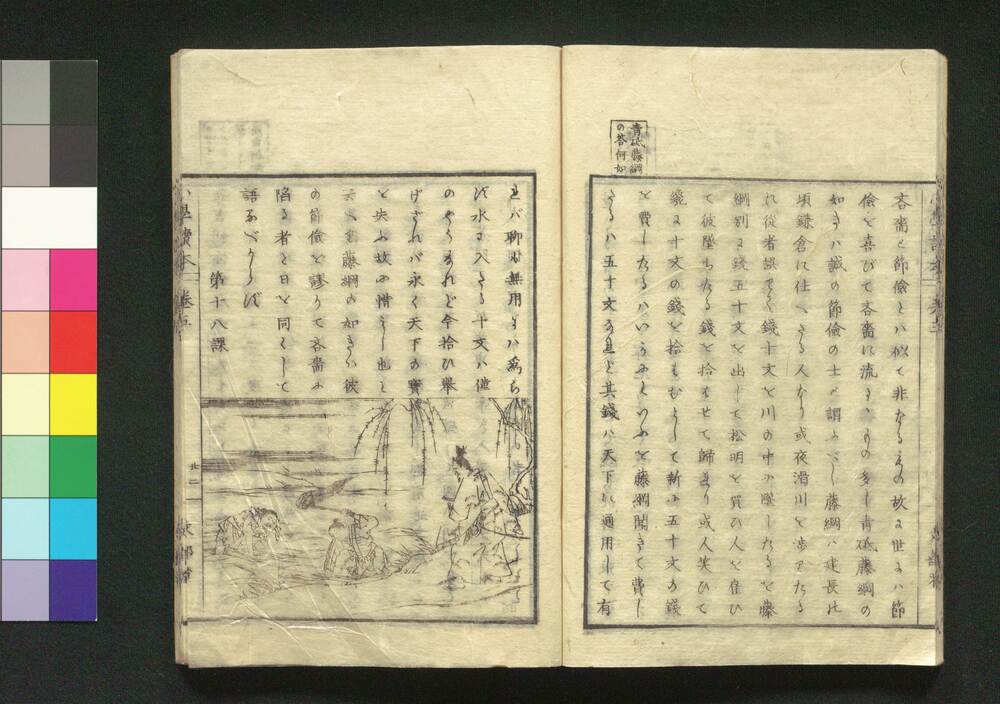 青砥藤綱
の答何如
吝嗇と節儉とハ似て非なるもの故に世にハ節
儉を喜びて吝嗇に流るゝもの多し青砥藤綱の
如きハ誠の節儉の士と謂ふべし藤綱ハ建長の
頃鎌倉に仕へたる人なり或夜滑川を渉りたる
に從者誤て錢十文を川の中に墜したるを藤
綱別に錢五十文を出して松明を買ひ人を雇ひ
て彼墜ちたる錢を拾はせて歸れり或人笑ひて
錢十文の錢を拾はむとして新に五十文の錢
を費したるハいかにといふを藤綱聞きて費し
たるハ五十文なれど其錢ハ天下に通用して有
れバ聊も無用とハ爲ら
ず水に入たる十文ハ僅
のやうなれど今拾ひ擧
げざれバ永く天下の寶
を失ふ故に惜しむ也と
藤綱の如きハ彼
の節儉を謬りて吝嗇に
陷る者と日を同くして
語るべからず
第十八課
小學讀本 卷五